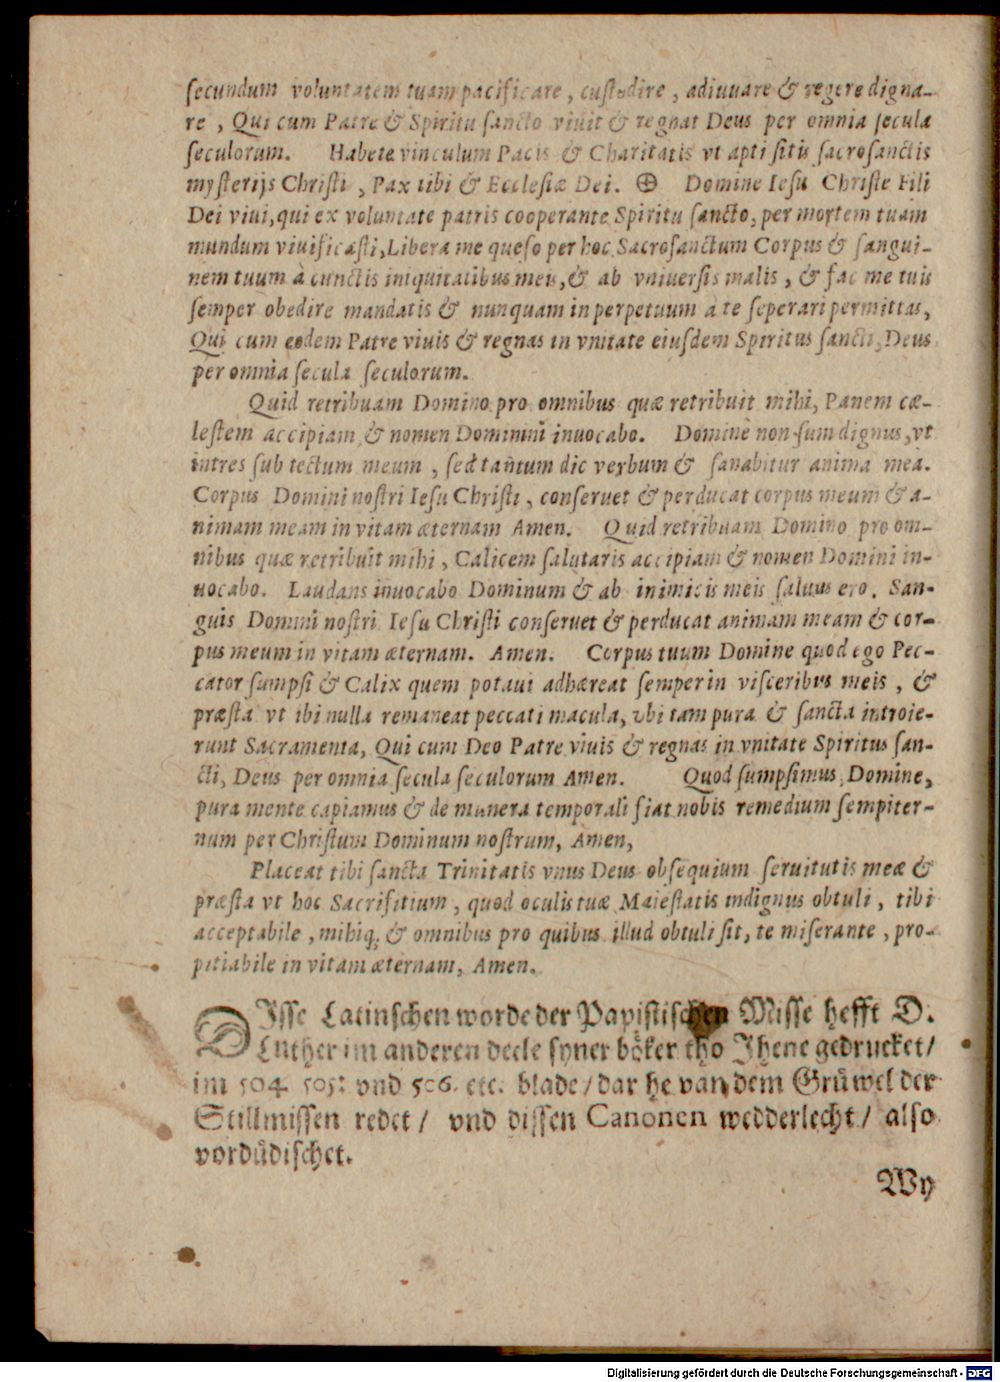 ſecundum voluntatem tuam pacificare, cuſtodire, adiuuare & regere digna-
re, Qui cum Patre & Spiritu ſancto viuit & regnat Deus per omnia ſecula
ſeculorum. Habete vinculum Pacis & Charitatis vt apti ſitis ſacroſanctis
myſterijs Chriſti, Pax tibi & Eccleſiæ Dei. ⊕ Domine Ieſu Chriſte Fili
Dei viui, qui ex voluntate patris cooperante Spiritu ſancto, per mortem tuam
mundum viuificaſti, Libera me queſo per hoc Sacroſanctum Corpus & ſangui-
nem tuum à cunctis iniquitatibus meis, & ab vniuerſis malis, & fac me tuis
ſemper obedire mandatis & nunquam in perpetuum a te ſeperari permittas,
Qui cum eodem Patre viuis & regnas in vnitate eiuſdem Spiritus ſancti, Deus
per omnia ſecula ſeculorum.
Quid retribuam Domino pro omnibus quæ retribuit mihi, Panem cæ-
leſtem accipiam & nomen Dominini inuocabo. Domine non ſum dignus, vt
intres ſub tectum meum, ſed tantum dic verbum & ſanabitur anima mea.
Corpus Domini noſtri Ieſu Chriſti, conſeruet & perducat corpus meum & a-
nimam meam in vitam æternam Amen. Quid retribuam Domino pro om-
nibus quæ retribuit mihi, Calicem ſalutaris accipiam & nomen Domini in-
uocabo. Laudans inuocabo Dominum & ab inimicis meis ſaluus ero. San-
guis Domini noſtri Ieſu Chriſti conſeruet & perducat animam meam & cor-
pus meum in vitam æternam. Amen. Corpus tuum Domine quod ego Pec-
cator ſumpſi & Calix quem potaui adhæreat ſemper in viſceribus meis, &
præſta vt ibi nulla remaneat peccati macula, vbi tam pura & ſancta introie-
runt Sacramenta, Qui cum Deo Patre viuis & regnas in vnitate Spiritus ſan-
cti, Deus per omnia ſecula ſeculorum Amen. Quod ſumpſimus Domine,
pura mente capiamus & de munera temporali fiat nobis remedium ſempiter-
num per Chriſtum Dominum noſtrum, Amen,
Placeat tibi ſancta Trinitatis vnus Deus obſequium ſeruitutis meæ &
præſta vt hoc Sacrifitium, quod oculis tuæ Maieſtatis indignus obtuli, tibi
acceptabile, mihiq; & omnibus pro quibus illud obtuli ſit, te miſerante, pro-
pitiabile in vitam æternam, Amen.
DIſſe Latinſchen worde der Papiſtiſchen Miſſe hefft D.
Luther im anderen deele ſyner böker tho Jhene gedrucket/
im 504. 505. vnd 506. etc. blade/ dar he van dem Grüwel der
Stillmiſſen redet/ vnd diſſen Canonen wedderlecht/ alſo
vordüdiſchet.
Wy
Digitalisierung gefördert durch die Deutsche Forschungsgemeinschaft - DFG